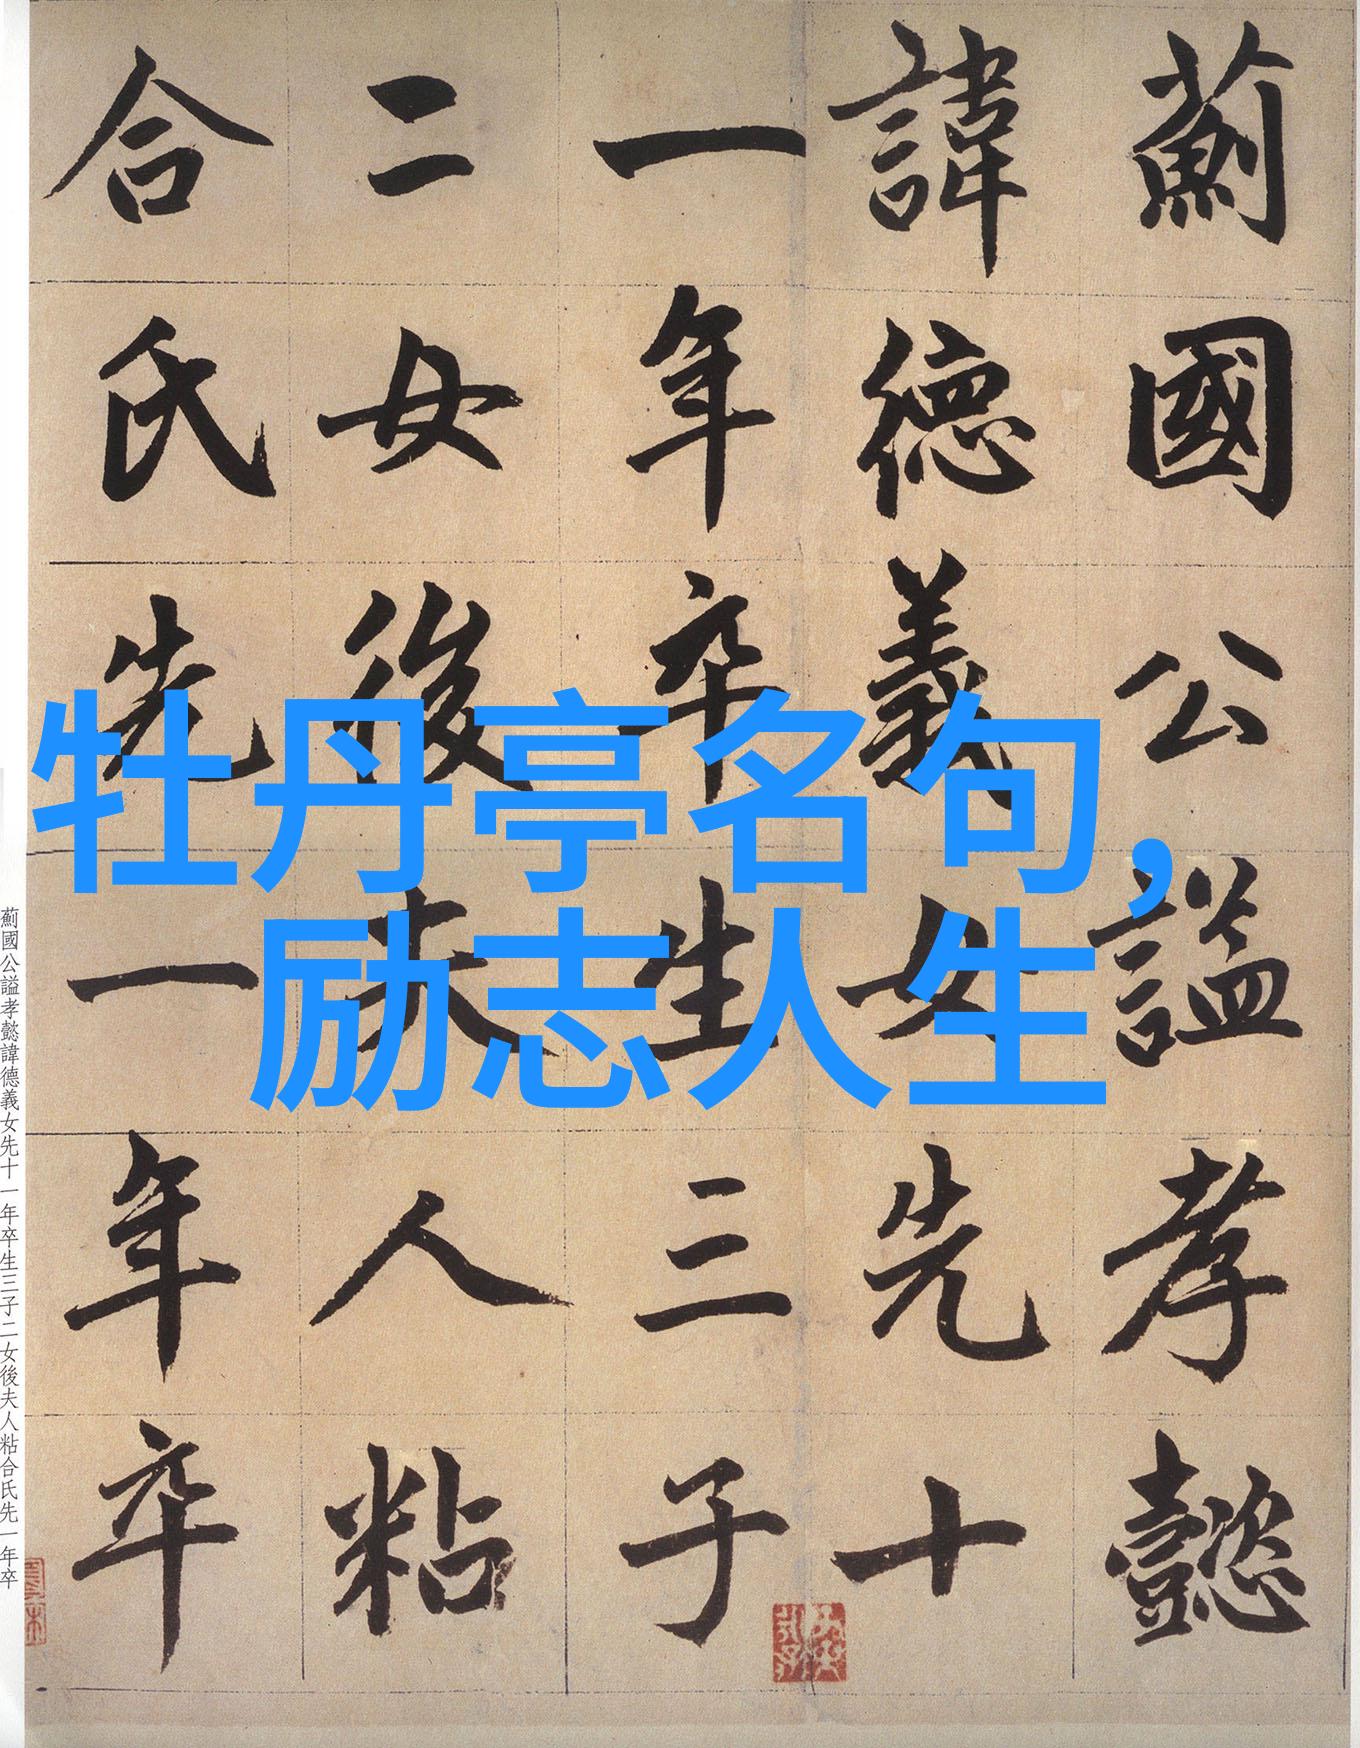 薊國公謚孝懿
諱德義女先十
一年卒生三子
二女後夫人粘
合氏先一年卒
牡丹亭名句，
励志人生
薊國公謚孝懿諱德義女先十一年卒生三子二女後夫人粘合氏先一年卒